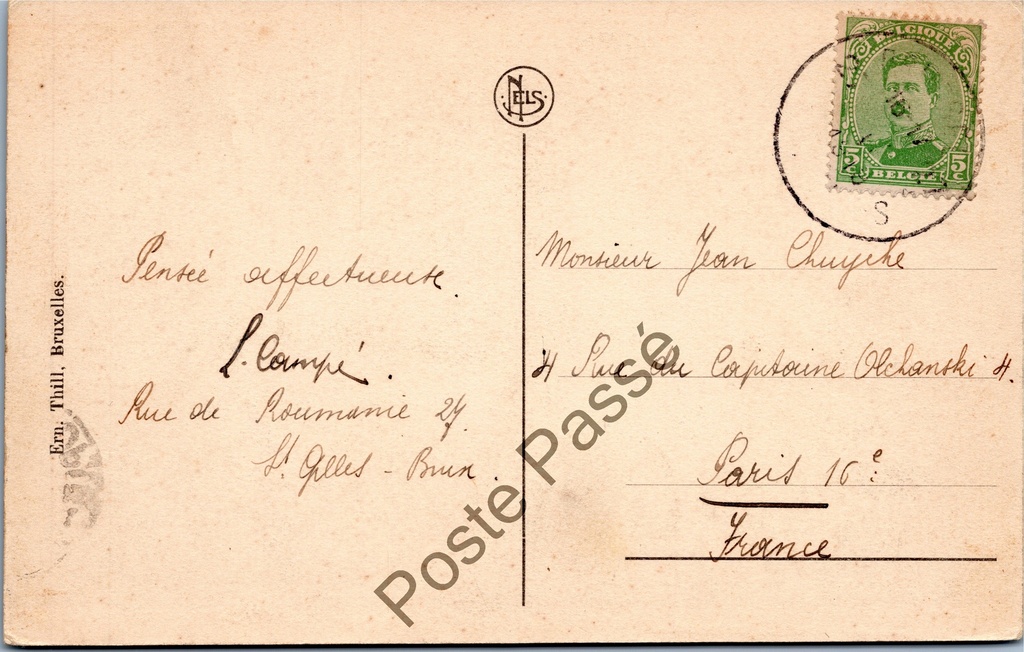 Ern. Thill, Bruxelles.
NELS
BELGIQUE
5 C 5 C
BELGIË
S
Pensée affectueuse.
L. Campé.
Rue de Roumanie 27
St Gilles - Brux.
Monsieur Jean Chuyche
4 Rue du Capitaine Olchanski 4.
Paris 16e:
France
Poste Passé